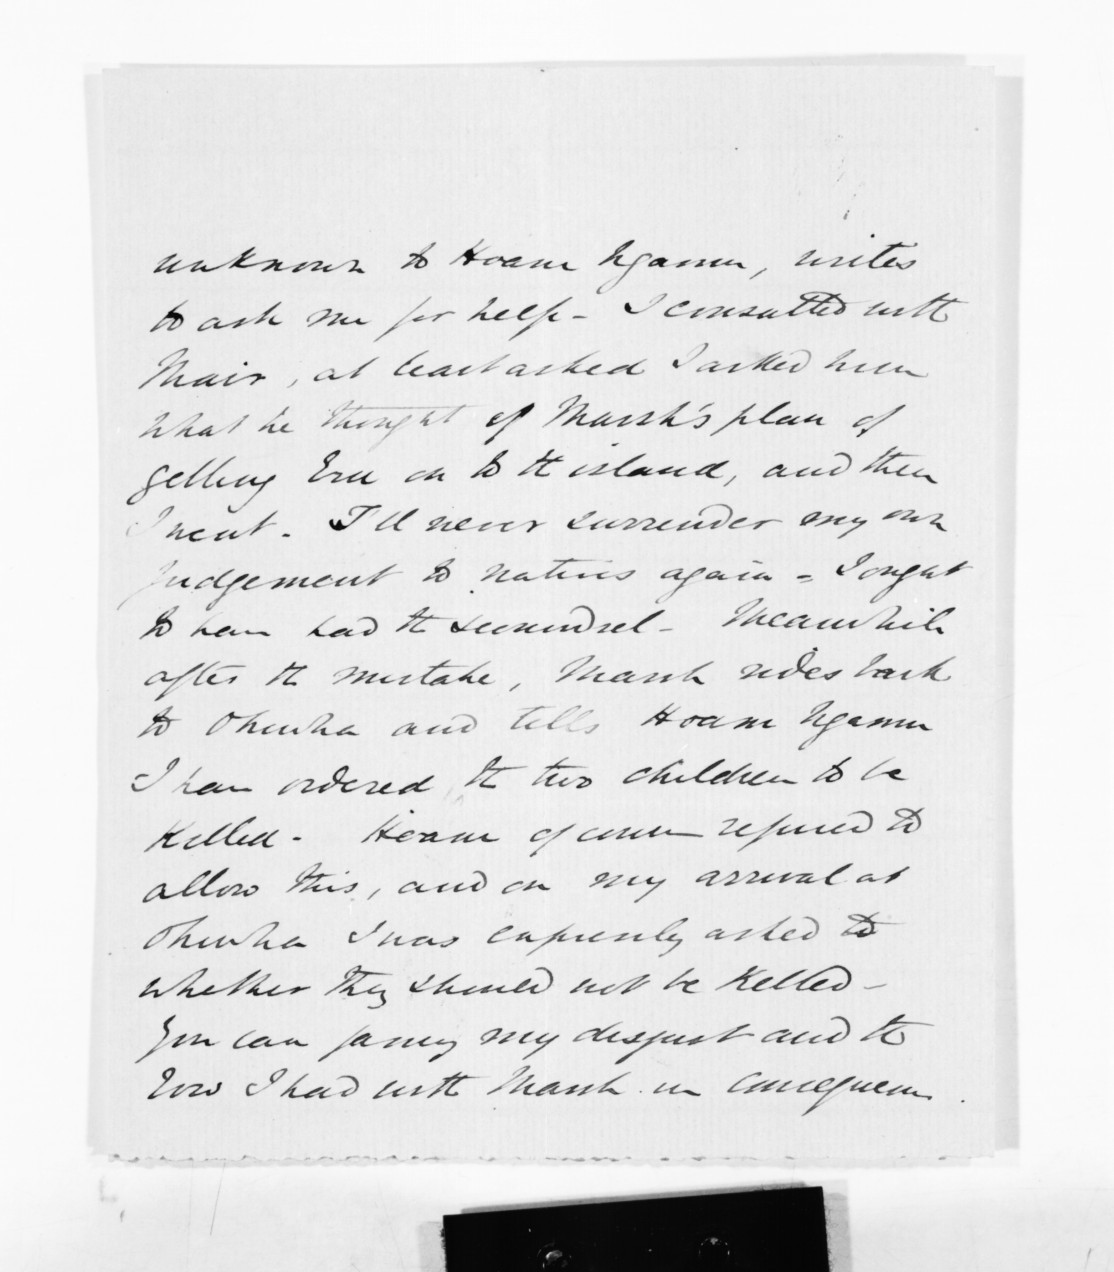 unknown to Hoani Ngamu, writes
to ask me for help - I consulted with
Mair, at least asked I asked him
what he thought of Marsh's plan of
getting Eru on to the island, and then
I went. I'll never surrender my own
judgement to natives again = I ought
to have had the scoundrel - Meanwhile
after the mistake, Marsh rides back
to Ohiwha and tells Hoani Ngamu
I have ordered the two children to be
killed - Hoani of course refused to
allow this, and on my arrival at
Ohiwha I was expressly asked to
whether they should not be killed -
You can fancy my disgust and the
row I had with Marsh in consequence.